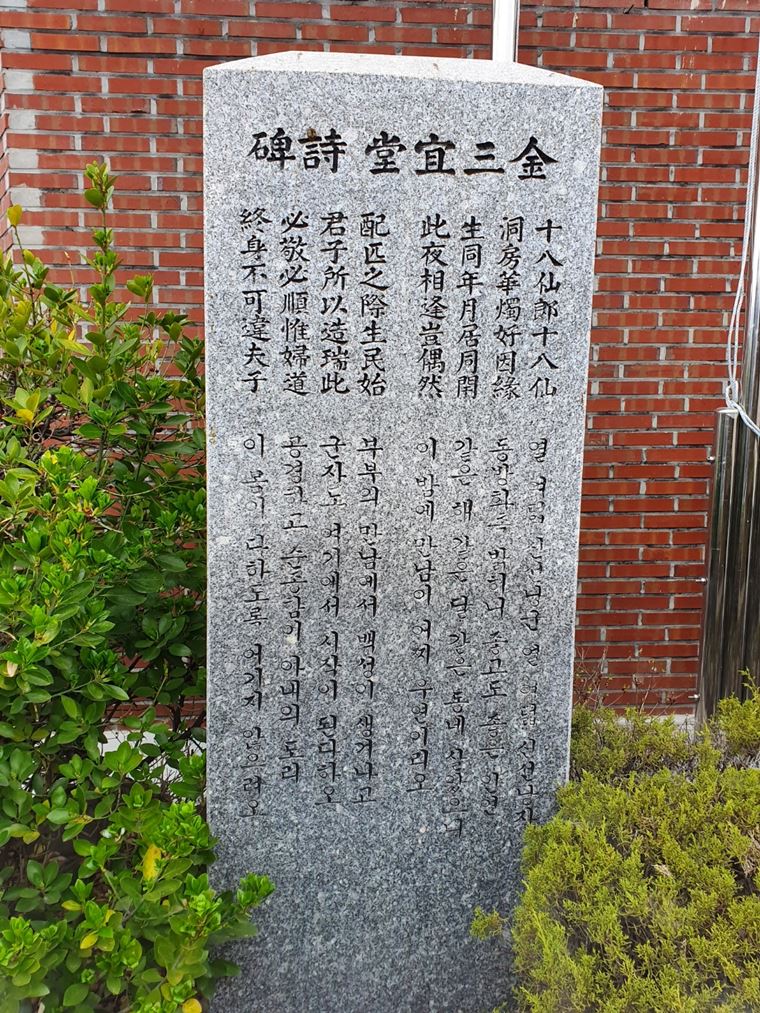 金三宜堂 詩碑
十八仙郎十八仙
洞房華燭好因緣
生同年月居同閈
此夜相逢豈偶然
配匹之際生民始
君子所以造端此
必敬必順惟婦道
終身不可違夫子
열 여덟 신선낭군 열 여덟 신선낭자
동방화촉 밝히니 좋고도 좋은 인연
같은 해 같은 달 같은 동네 살았으니
이 밤에 만남이 어찌 우연이리오
부부의 만남에서 백성이 생겨나고
군자도 여기에서 시작이 된다하오
공경하고 순종함이 아내의 도리
이 몸이 다하도록 어기지 않으려오